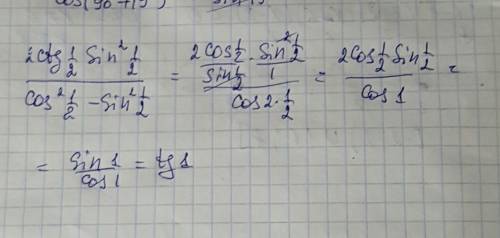 cos(90+15)
2ctg 1/2 sin² 1/2 / cos² 1/2 - sin² 1/2 = 2cos 1/2 / sin 1/2 · sin² 1/2 / 1 / cos 2· 1/2 = 2cos 1/2 sin 1/2 / cos 1 =
= sin 1 / cos 1 = tg 1